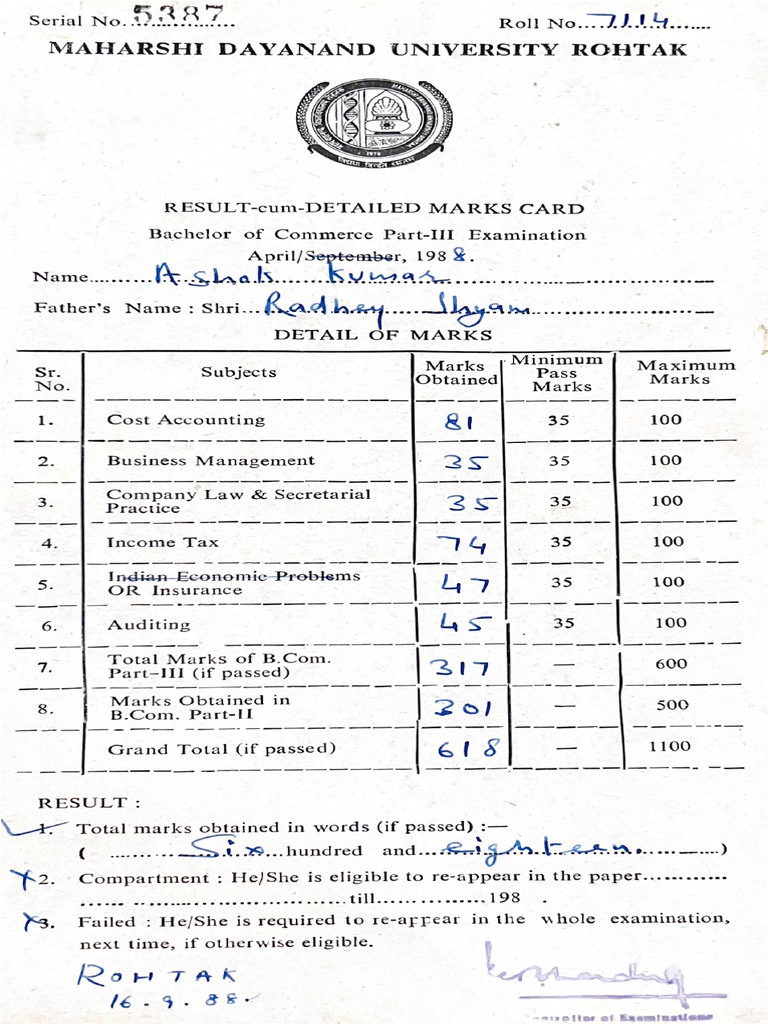 Serial No. 5387 Roll No. 7114
MAHARSHI DAYANAND UNIVERSITY ROHTAK
RESULT-cum-DETAILED MARKS CARD
Bachelor of Commerce Part-III Examination
April/September, 1988.
Name Ashok Kumar
Father's Name : Shri Radhey Shyam
DETAIL OF MARKS
Sr. No. Subjects Marks Obtained Minimum Pass Marks Maximum Marks
1. Cost Accounting 81 35 100
2. Business Management 35 35 100
3. Company Law & Secretarial Practice 35 35 100
4. Income Tax 74 35 100
5. Indian Economic Problems OR Insurance 47 35 100
6. Auditing 45 35 100
7. Total Marks of B.Com. Part-III (if passed) 317 — 600
8. Marks Obtained in B.Com. Part-II 301 — 500
Grand Total (if passed) 618 — 1100
RESULT :
1. Total marks obtained in words (if passed) :—
( Six hundred and eighteen. )
2. Compartment : He/She is eligible to re-appear in the paper
till 198 .
3. Failed : He/She is required to re-appear in the whole examination,
next time, if otherwise eligible.
ROHTAK
16.9.88.
of Examinations